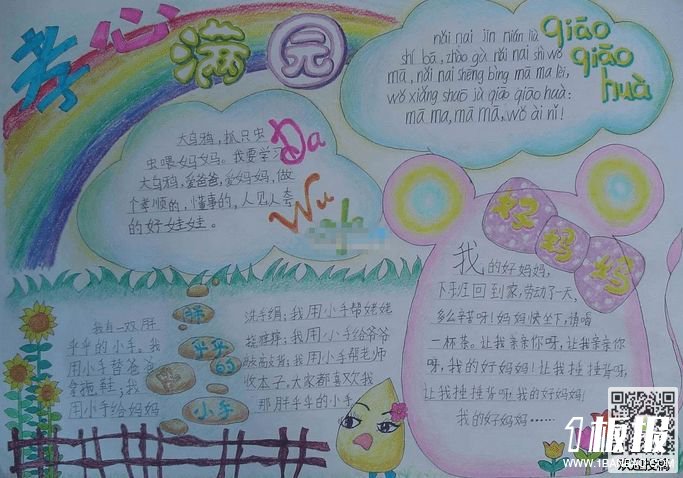 孝心满园
qiǎo qiǎo huà
nǎi nai jīn nián liù
shí bā, zhào gù nǎi nai shì wǒ
mā, nǎi nai shēng bìng mā ma lèi,
wǒ xiǎng shuō jù qiǎo qiǎo huà:
mā ma, mā mā, wǒ ài nǐ!
Da
Wu
大乌鸦,抓只虫
虫喂妈妈。我要学习
大乌鸦,爱爸爸,爱妈妈,做
个孝顺的,懂事的,人见人夸
的好娃娃。
好妈妈
我的好妈妈,
下班回到家,劳动了一天,
多么辛苦呀!妈妈快坐下,请喝
一杯茶。让我亲亲你呀,让我亲亲你
呀,我的好妈妈!让我捶捶背呀,
让我捶捶背呀,我的好妈妈!
我的好妈妈……
胖
乎乎
的
小手
我有一双胖
乎乎的小手。我
用小手替爸爸
拿拖鞋;我
用小手给妈妈
洗手绢;我用小手帮姥姥
挠痒痒;我用小手给爷爷
我用小手帮老师
收本子,大家都喜欢我
那胖乎乎的小手。
1板报
WWW.1BANBAO.COM
欢迎投稿